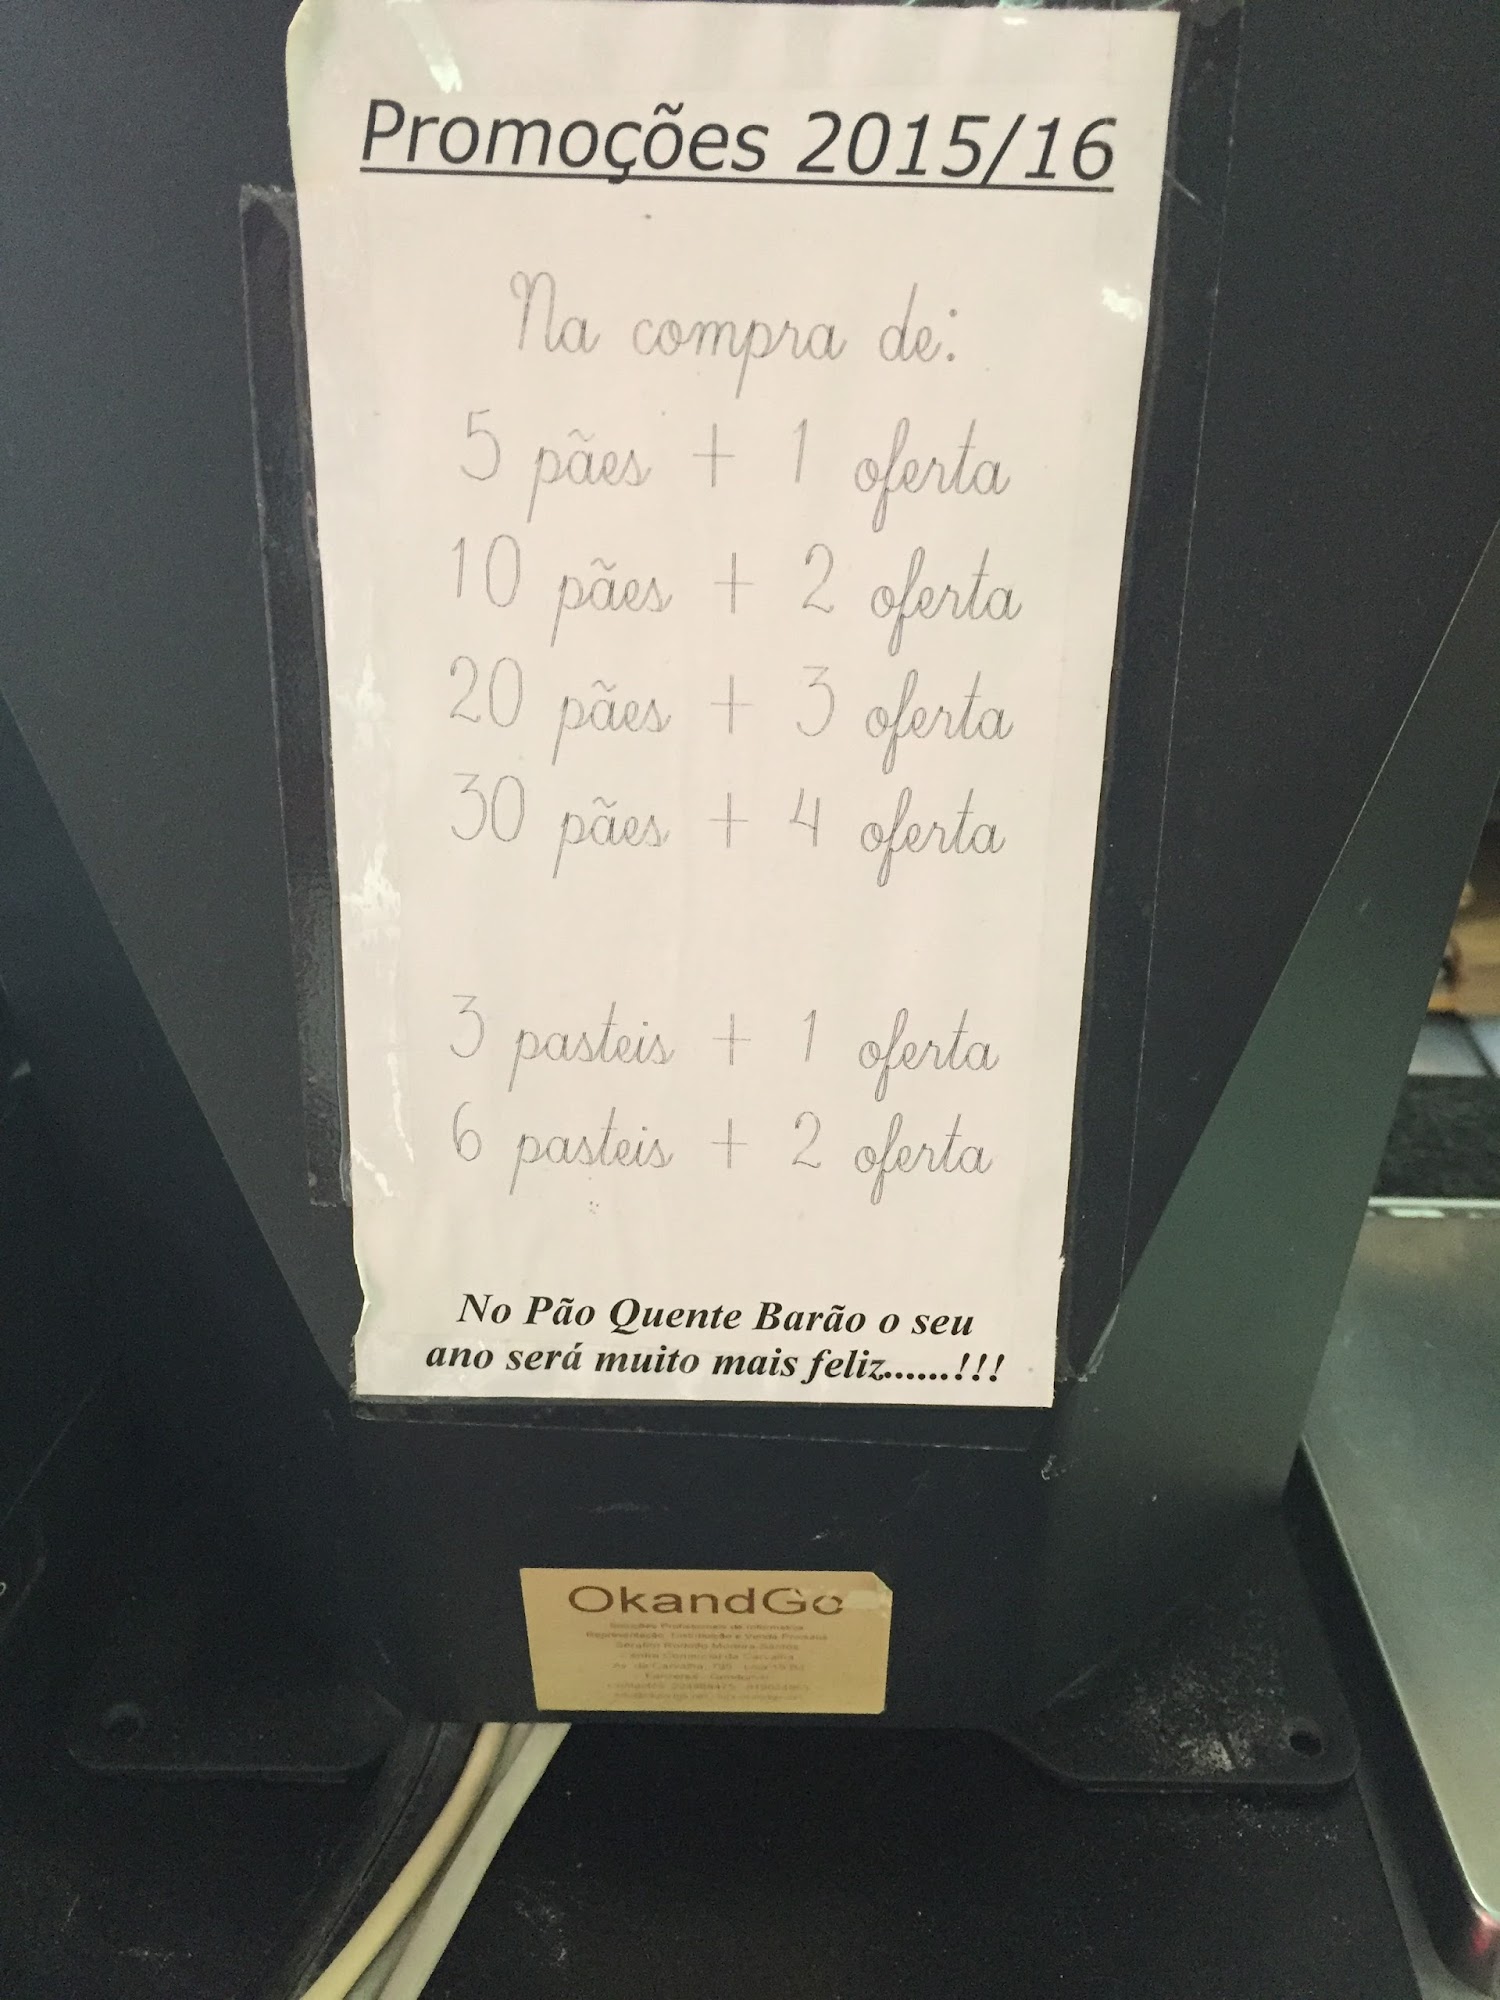 Promoções 2015/16
Na compra de:
5 pães + 1 oferta
10 pães + 2 oferta
20 pães + 3 oferta
30 pães + 4 oferta
3 pasteis + 1 oferta
6 pasteis + 2 oferta
No Pão Quente Barão o seu
ano será muito mais feliz.......!!!
OkandGo